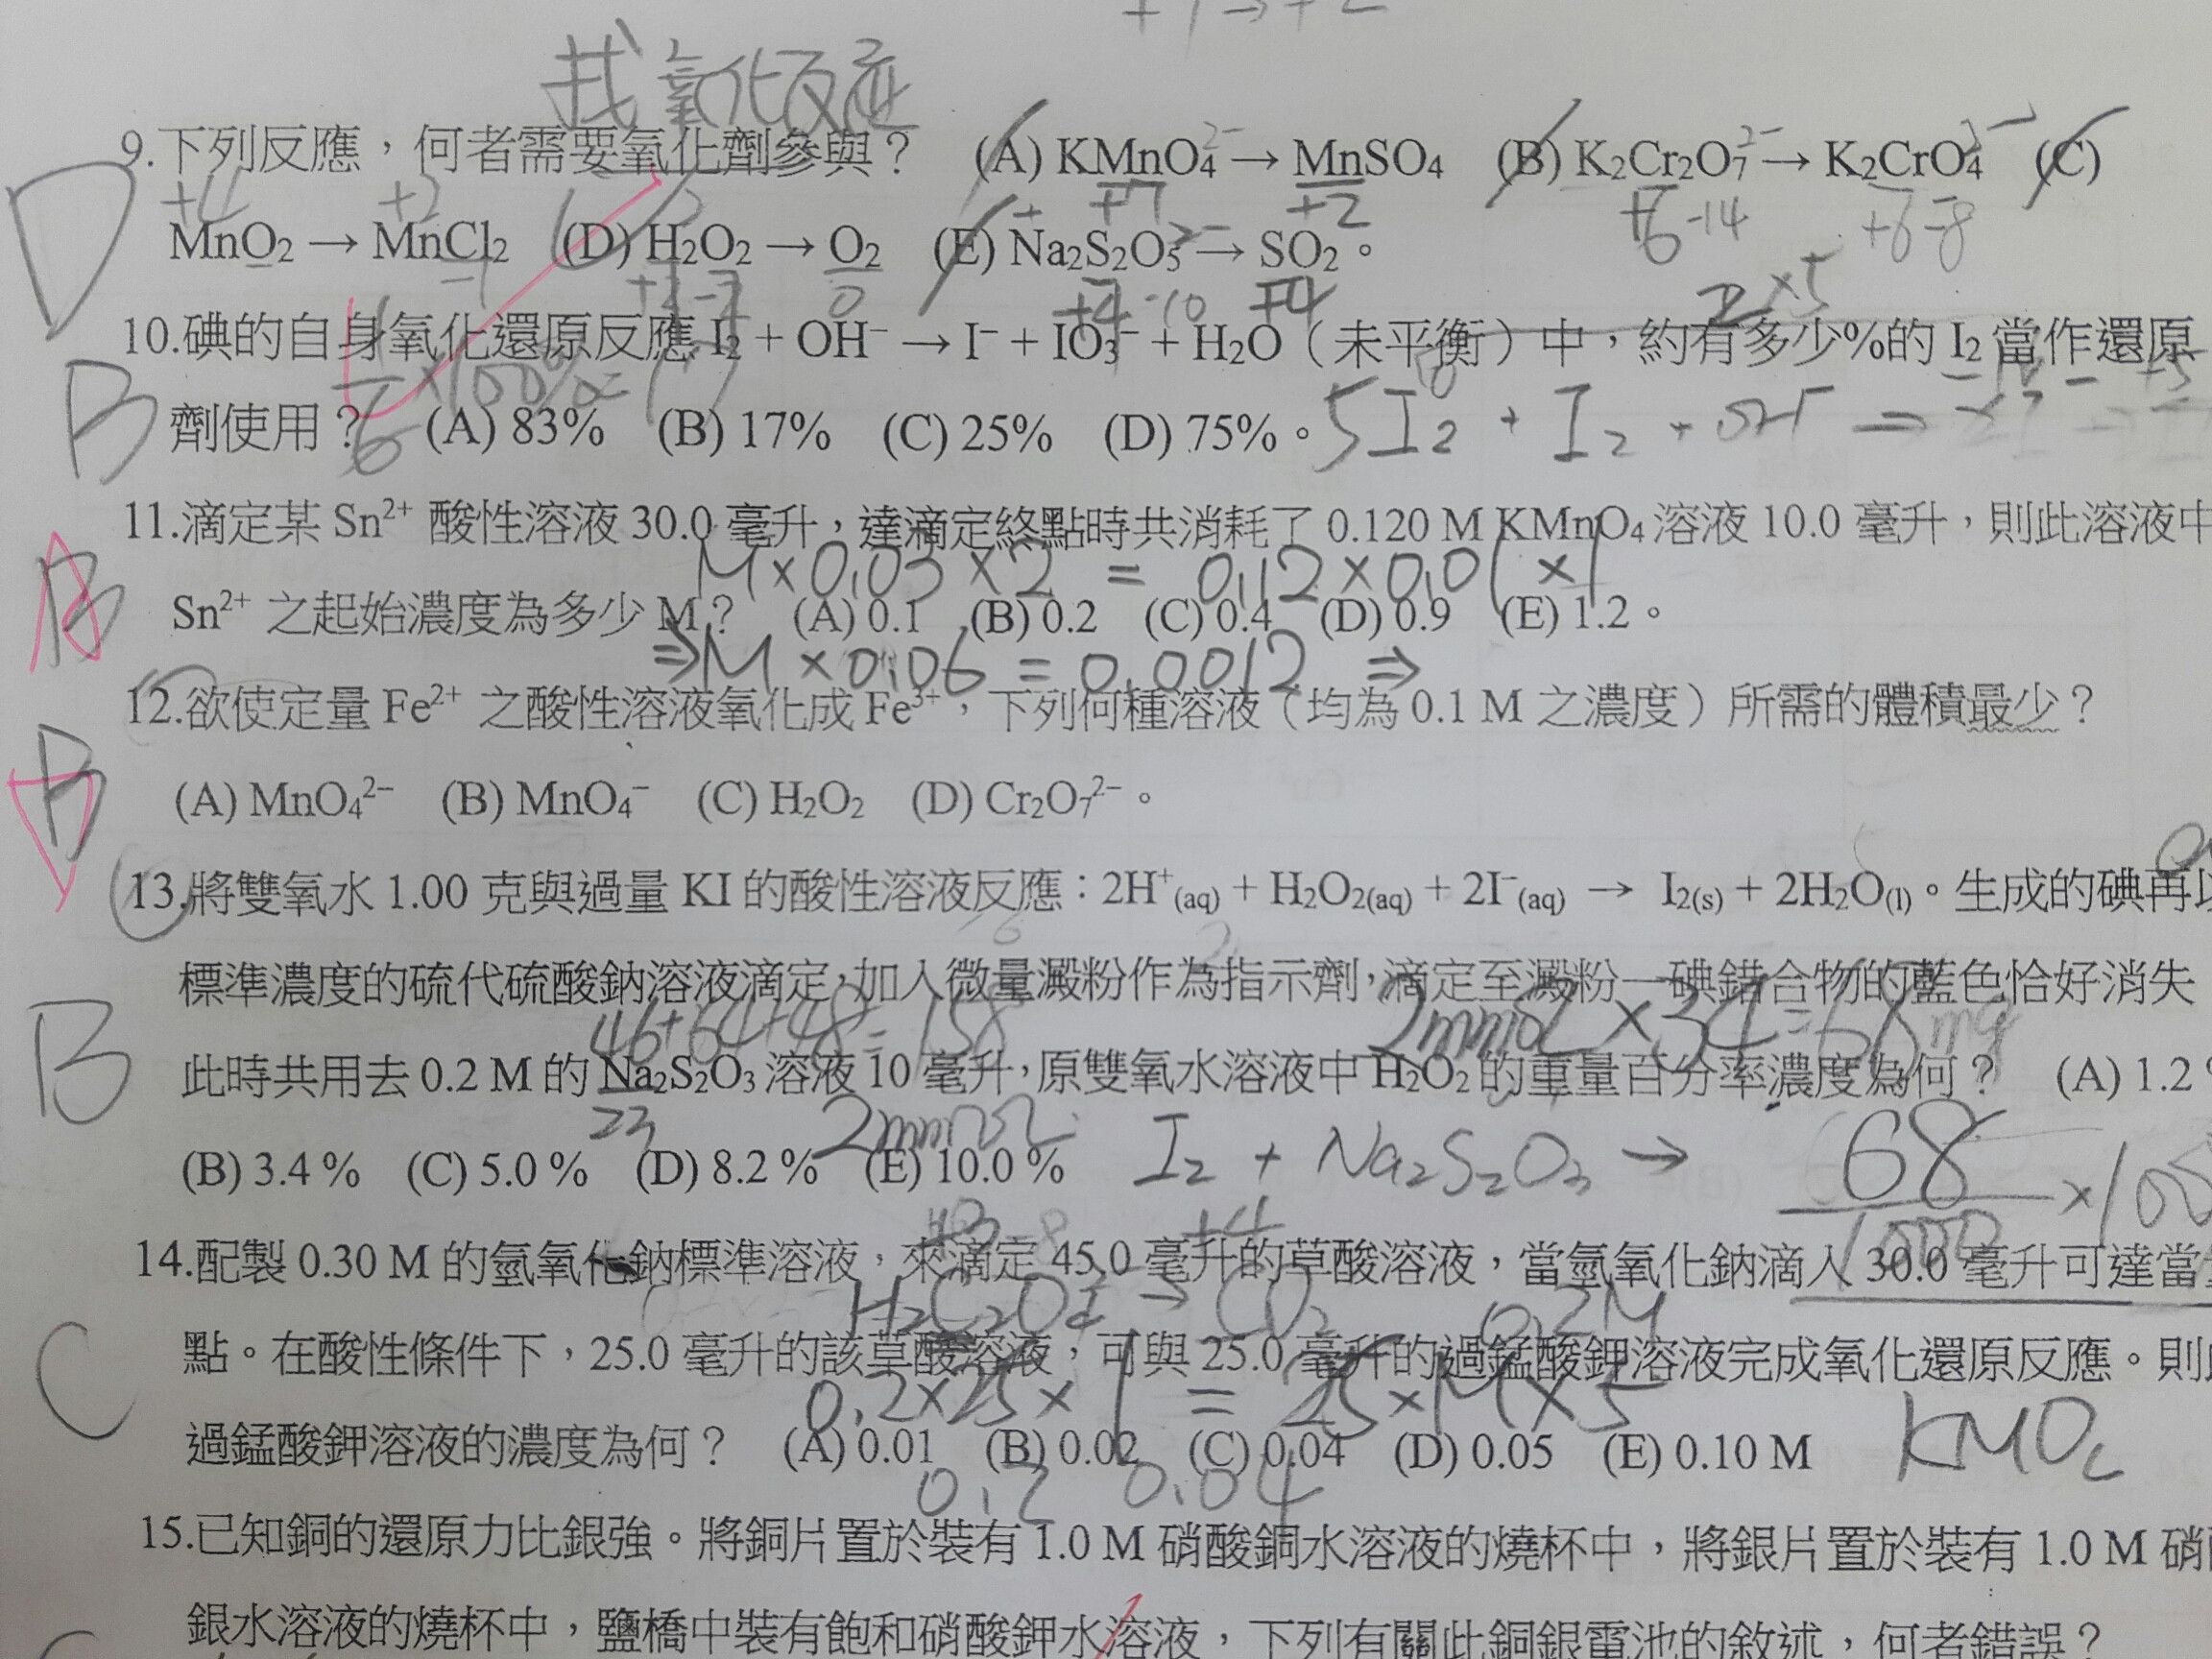 +1→+2
找氧化反應
9.下列反應，何者需要氧化劑參與？ (A) KMnO₄ → MnSO₄ (B) K₂Cr₂O₇ → K₂CrO₄ (C)
+7 +2 +6 -14 +6 -8
D
+4 +2
MnO₂ → MnCl₂ (D) H₂O₂ → O₂ (E) Na₂S₂O₅ → SO₂。
-1 0 +4 -10 +4
10.碘的自身氧化還原反應 I₂ + OH⁻ → I⁻ + IO₃⁻ + H₂O（未平衡）中，約有多少%的 I₂ 當作還原
B
1/6 ×100% ≈ 17
劑使用？ (A) 83% (B) 17% (C) 25% (D) 75%。
5I₂ + I₂ + OH⁻ ⇒
11.滴定某 Sn²⁺ 酸性溶液 30.0 毫升，達滴定終點時共消耗了 0.120 M KMnO₄ 溶液 10.0 毫升，則此溶液中
M×0.03×2 = 0.12×0.01×1
B
Sn²⁺ 之起始濃度為多少 M？ (A) 0.1 (B) 0.2 (C) 0.4 (D) 0.9 (E) 1.2。
⇒M×0.06 = 0.0012 ⇒
12.欲使定量 Fe²⁺ 之酸性溶液氧化成 Fe³⁺，下列何種溶液（均為 0.1 M 之濃度）所需的體積最少？
B
(A) MnO₄²⁻ (B) MnO₄⁻ (C) H₂O₂ (D) Cr₂O₇²⁻。
13.將雙氧水 1.00 克與過量 KI 的酸性溶液反應：2H⁺(aq) + H₂O₂(aq) + 2I⁻(aq) → I₂(s) + 2H₂O(l)。生成的碘再以
標準濃度的硫代硫酸鈉溶液滴定，加入微量澱粉作為指示劑，滴定至澱粉－碘錯合物的藍色恰好消失
46+64+48=158 2mmol×34=68mg
B
此時共用去 0.2 M 的 Na₂S₂O₃ 溶液 10 毫升，原雙氧水溶液中 H₂O₂ 的重量百分率濃度為何？ (A) 1.2 %
23 2mmol
(B) 3.4 % (C) 5.0 % (D) 8.2 % (E) 10.0 %
I₂ + Na₂S₂O₃ → 68/1000 ×100
+3 -8 +4
14.配製 0.30 M 的氫氧化鈉標準溶液，來滴定 45.0 毫升的草酸溶液，當氫氧化鈉滴入 30.0 毫升可達當量
H₂C₂O₄ → CO₂ 0.2M
C
點。在酸性條件下，25.0 毫升的該草酸溶液，可與 25.0 毫升的過錳酸鉀溶液完成氧化還原反應。則此
0.2×25×1 = 25×M×5
過錳酸鉀溶液的濃度為何？ (A) 0.01 (B) 0.02 (C) 0.04 (D) 0.05 (E) 0.10 M
0.2 0.04
15.已知銅的還原力比銀強。將銅片置於裝有 1.0 M 硝酸銅水溶液的燒杯中，將銀片置於裝有 1.0 M 硝酸
銀水溶液的燒杯中，鹽橋中裝有飽和硝酸鉀水溶液，下列有關此銅銀電池的敘述，何者錯誤？